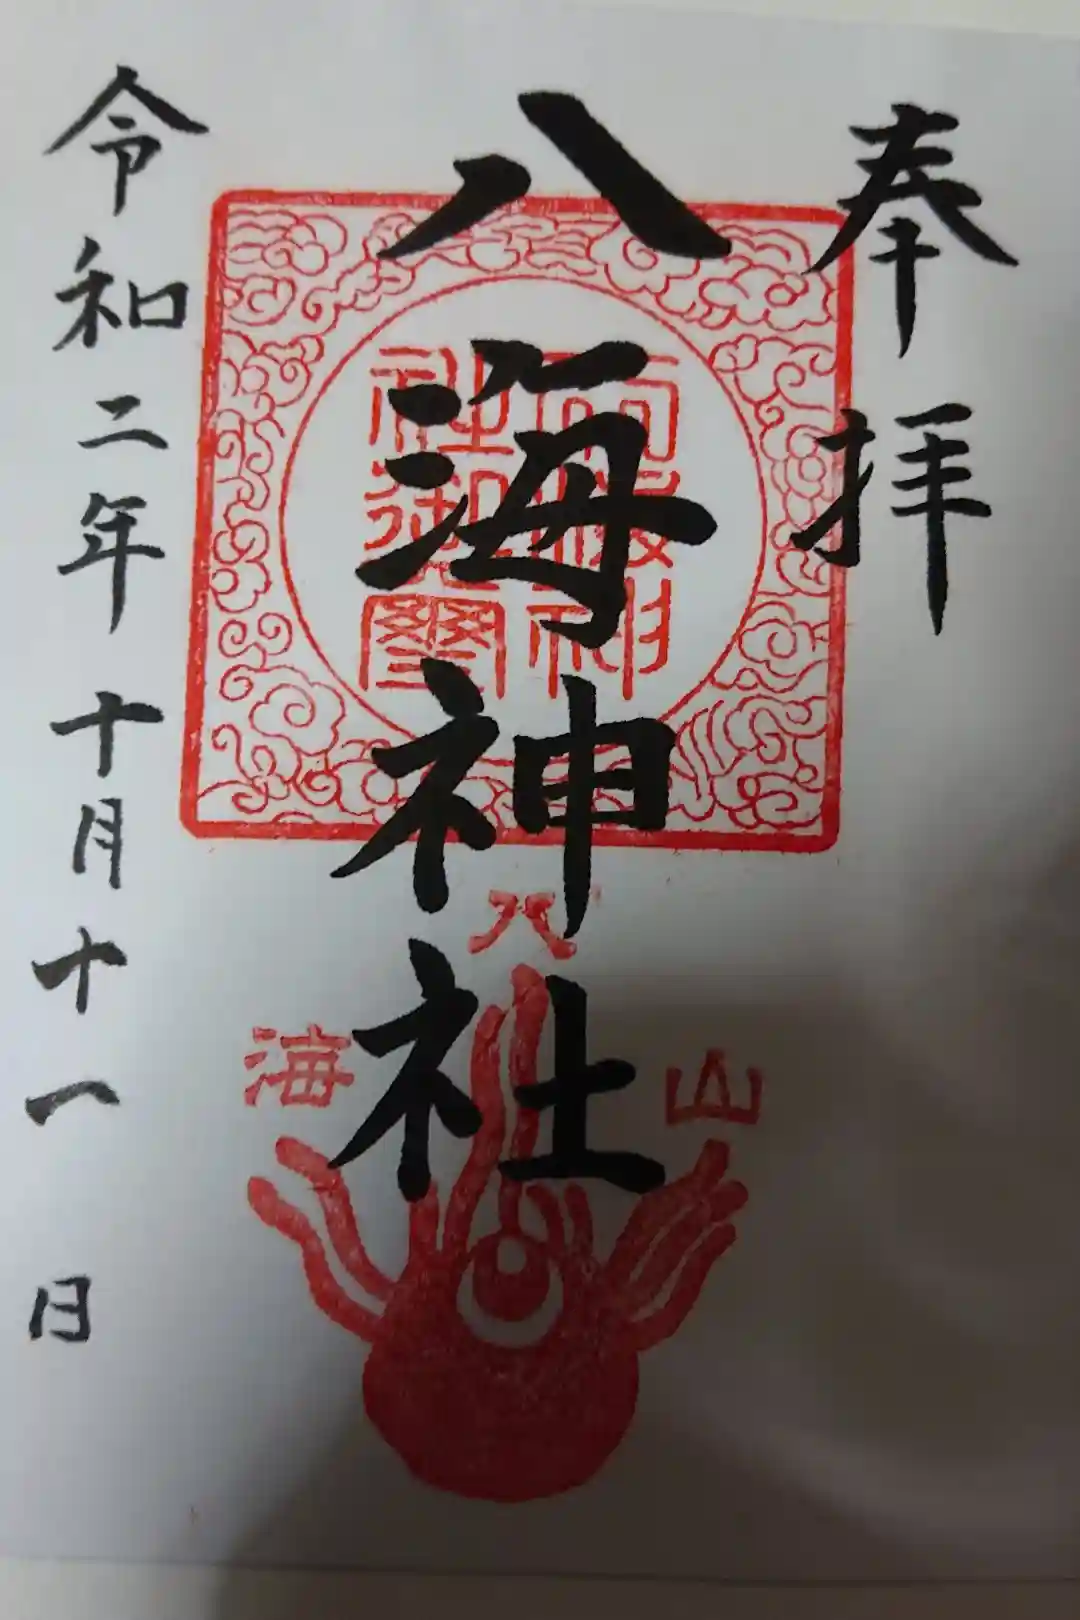 奉拝
八海神社
八
海
山
令和二年十月十一日